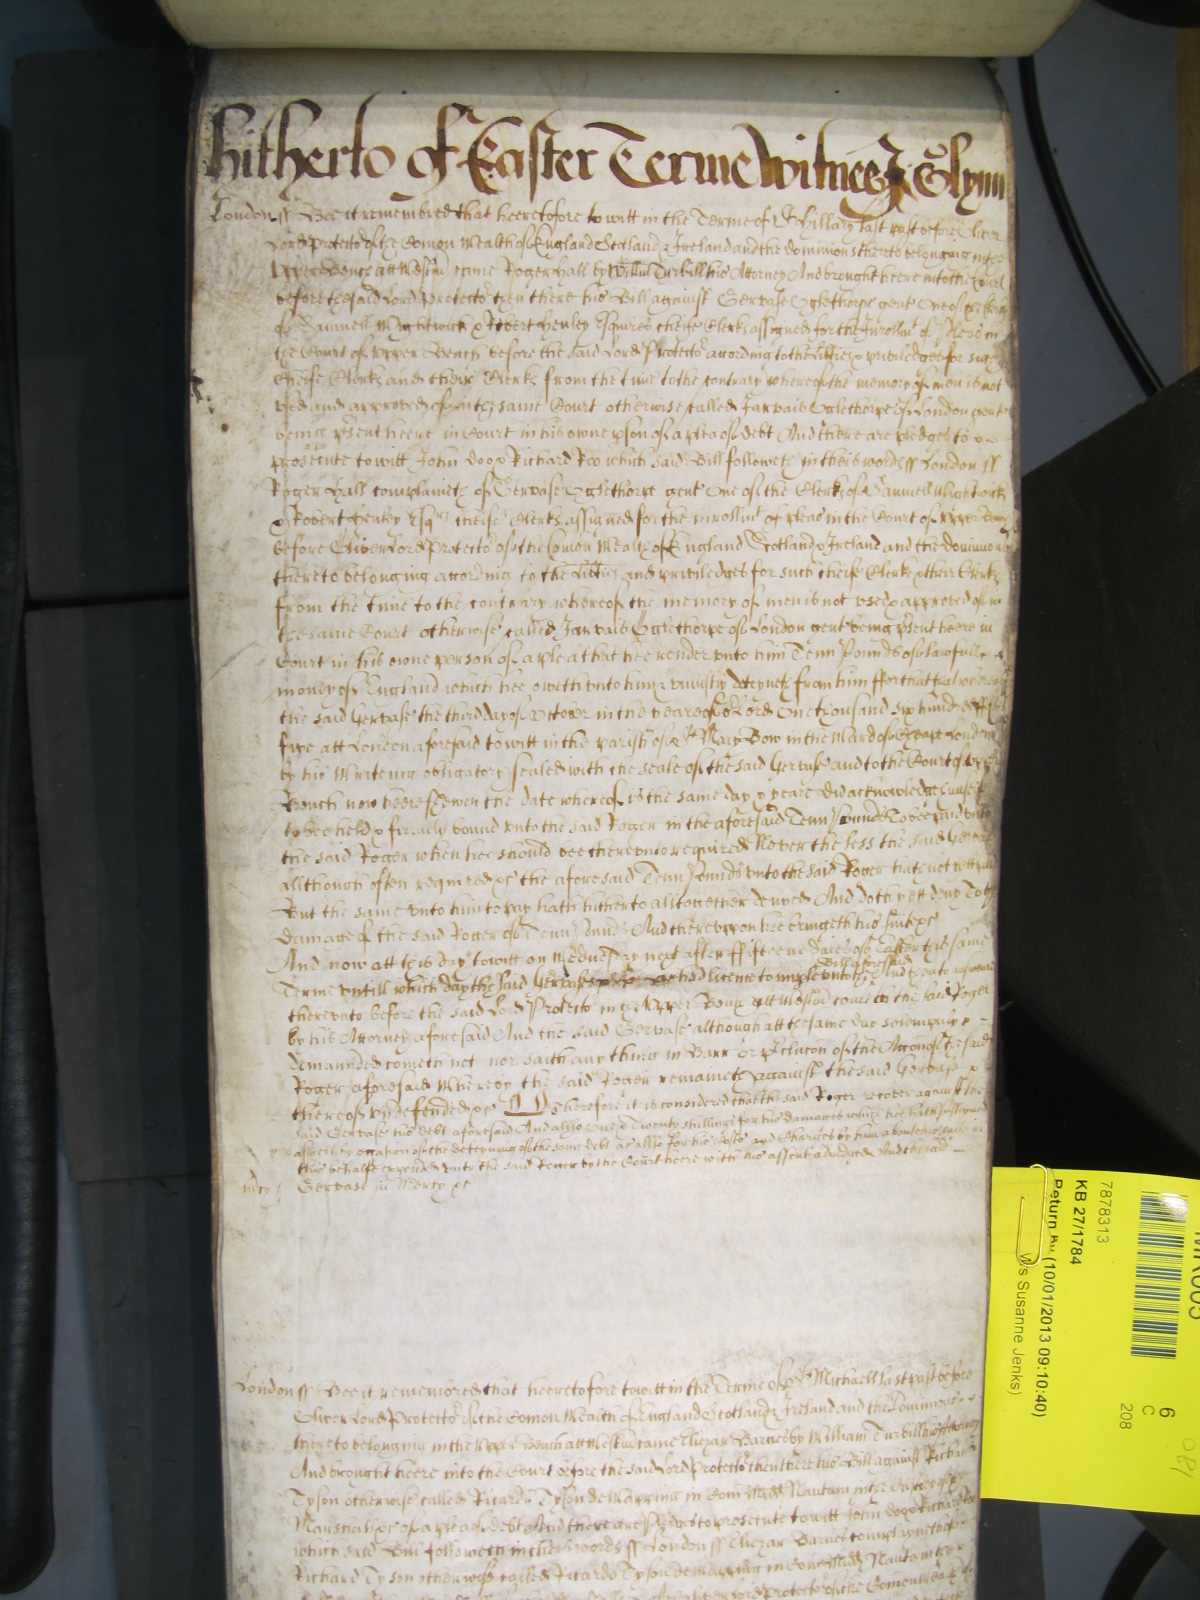 hitherto of Easter Terme Witnes J Glynn
London ss Bee it remembred that heeretofore to witt in the Terme of St Hillary last past before Oliver
Lord Protector of the Comon Wealth of England Scotland & Ireland and the dominions thereto belonging in the
Upper Bench att Westmr came Roger Hall by Willm Turbill his Attorney And brought heere into the Court
before the said Lord Protector then there his Bill against Gervase Oglethorpe gent One of the Clerkes
of Samuell Wightwick & Robert Henley Esquires cheife Clerks assigned for the Inrollmt of Pleas in
the Court of Upper Bench before the said Lord Protector according to the Libties & priviledges for such
Cheife Clerks and their Clerks from the time to the contrary whereof the memory of men is not
used and approved of in the same Court otherwise called Jarvais Oglethorpe of London gent
being psent heere in Court in his owne pson of a plea of debt And there are pledges to
prosecute to witt John Doo & Richard Roo which said Bill followeth in theis words ss London ss
Roger Hall complaineth of Gervase Oglethorpe gent One of the Clerks of Samuell Wightwick
& Robert Henley Esqrs cheife Clerks assigned for the inrollmt of pleas in the Court of Upper Bench
before Oliver Lord Protector of the Comon Wealth of England Scotland & Ireland and the dominions
thereto belonging according to the Libties and priviledges for such cheife Clerks & their Clerks
from the time to the contrary whereof the memory of men is not used & approved of in
the same Court otherwise called Jarvais Oglethorpe of London gent being psent heere in
Court in his owne person of a plea that hee render unto him Tenn Pounds of lawfull
money of England which hee oweth unto him & uniustly deteyneth from him ffor that that whereas
the said Gervase the third day of October in the yeare of or Lord One thousand six hundred fifty
five att London aforesaid to witt in the parish of St Mary Bow in the Ward of Cheape London
by his Writeing obligatory sealed with the seale of the said Gervase and to the Court of Upper
Bench now heere shewen the date whereof is the same day & yeare Did acknowledge himselfe
to bee held & firmely bound unto the said Roger in the aforesaid Tenn Pounds To bee paid unto
the said Roger when hee should bee thereunto required Neverthelesse the said Gervase
allthough often required &c the aforesaid Tenn Pounds unto the said Roger hath not
But the same unto him to pay hath hitherto alltogether denyed And doth yett deny To the
damage of the said Roger of Tenn Pounds And thereuppon hee bringeth his suite &c
And now att this day to witt on Wednesday next after ffifteene daies of Easter this same
Terme untill which day the said Gervase had licence to imple unto the Bill aforesaid And then to answere
thereunto before the said Lord Protector in the Upper Bench att Westmr cometh the said Roger
by his Attorney aforesaid And the said Gervase although att the same day solempnly
demaunded cometh not nor saith any thing in Barr or pclucon of the Accon of the said
Roger aforesaid Whereby the said Roger remaineth against the said Gervase
thereof undefended &c Therefore it is considered that the said Roger recover against the
said Gervase his debt aforesaid And allso One & Twenty shillings for his damages which hee hath susteyned
aswell by occasion of the deteyning of the same debt as allso for his Costs and Charges by him about his suite in
this behalfe expended unto the said Roger by the Court heere with his assent adiudged And the said
Gervase in Mercy &c
London ss Bee it remembred that heeretofore to witt in the Terme of St Michaell last past before
Oliver Lord Protector of the Comon Wealth of England Scotland & Ireland and the Dominions
thereto belonging in the Upper Bench att Westmr came Eliezar Barnes by William Turbill his Attorney
And brought heere into the Court before the said Lord Protector then there his Bill against Richard
Tyson otherwise called Ricardu Tyson de Wapping in Com Midd Nautam in the Custody of the
Marshall &c of a plea of debt And there are Pledges to prosecute to witt John Doo & Richard Roo
which said Bill followeth in theis words ss London ss Eliezar Barnes complayneth of
Richard Tyson otherwise called Ricardu Tyson de Wapping in Com Midd Nautam
Lord Protector of the Comon Wealth
7878313
KB 27/1784
Return by (10/01/2013 09:10:40)
Ms Susanne Jenks)
6
C
208